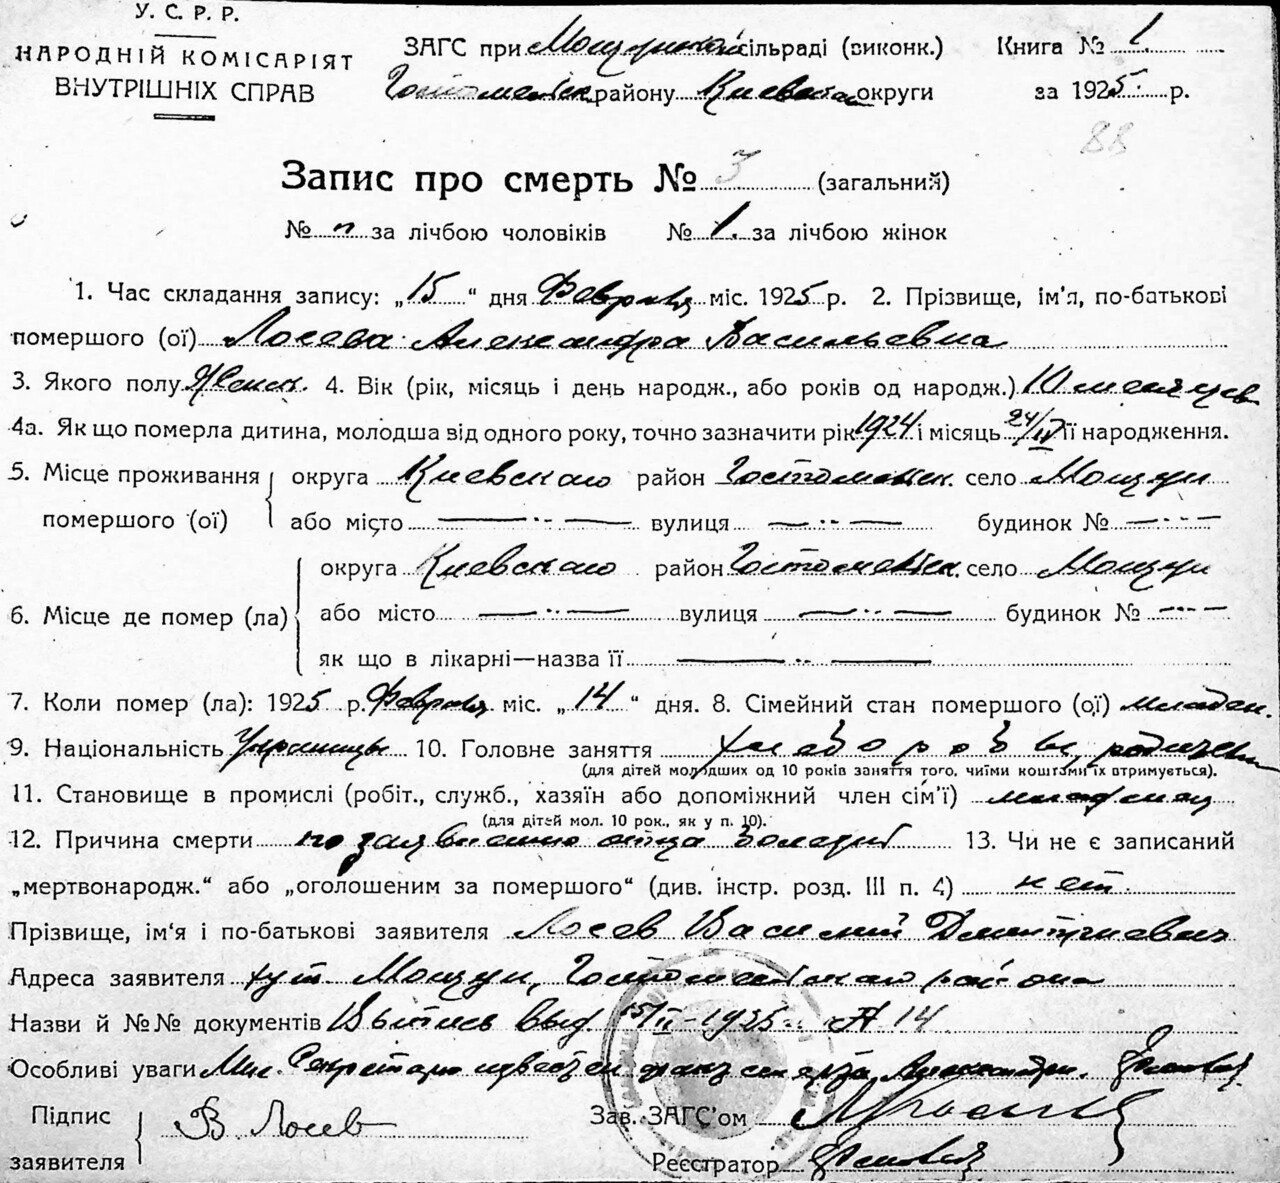 У. С. Р. Р.
НАРОДНІЙ КОМІСАРІЯТ
ВНУТРІШНІХ СПРАВ
ЗАГС при Мощунской сільраді (виконк.)
Гостомельск. району Киевская округи
Книга № 1
за 1925 р.
88
Запис про смерть № 3 (загальний)
№ " за лічбою чоловіків № 1. за лічбою жінок
1. Час складання запису: „15“ дня Февраля міс. 1925 р. 2. Прізвище, ім'я, по-батькові
помершого (ої) Лосева Александра Васильевна
3. Якого полу Женск. 4. Вік (рік, місяць і день народж., або років од народж.) 10 месяцев
4а. Як що померла дитина, молодша від одного року, точно зазначити рік 1924 і місяць 24/IV її народження.
5. Місце проживання помершого (ої)
округа Киевская район Гостомельск. село Мощун
або місто вулиця будинок №
6. Місце де помер (ла)
округа Киевская район Гостомельск. село Мощун
або місто вулиця будинок №
як що в лікарні—назва її
7. Коли помер (ла): 1925 р. Февраля міс. „14“ дня. 8. Сімейний стан помершого (ої) младен.
9. Національність Украинцы 10. Головне заняття хлебороб
(для дітей молодших од 10 років заняття того, чиїми коштами їх втримується).
11. Становище в промислі (робіт., служб., хазяїн або допоміжний член сім'ї)
(для дітей мол. 10 рок., як у п. 10).
12. Причина смерти по заявлению отца 13. Чи не є записаний
„мертвонародж.“ або „оголошеним за помершого“ (див. інстр. розд. III п. 4) нет.
Прізвище, ім'я і по-батькові заявителя Лосев Василий Дмитриевич
Адреса заявителя хут. Мощун, Гостомельского района
Назви й №№ документів Выпись выд. 15/II-1925 № 14.
Особливі уваги
Підпис заявителя В Лосев
Зав. ЗАГС'ом
Реєстратор